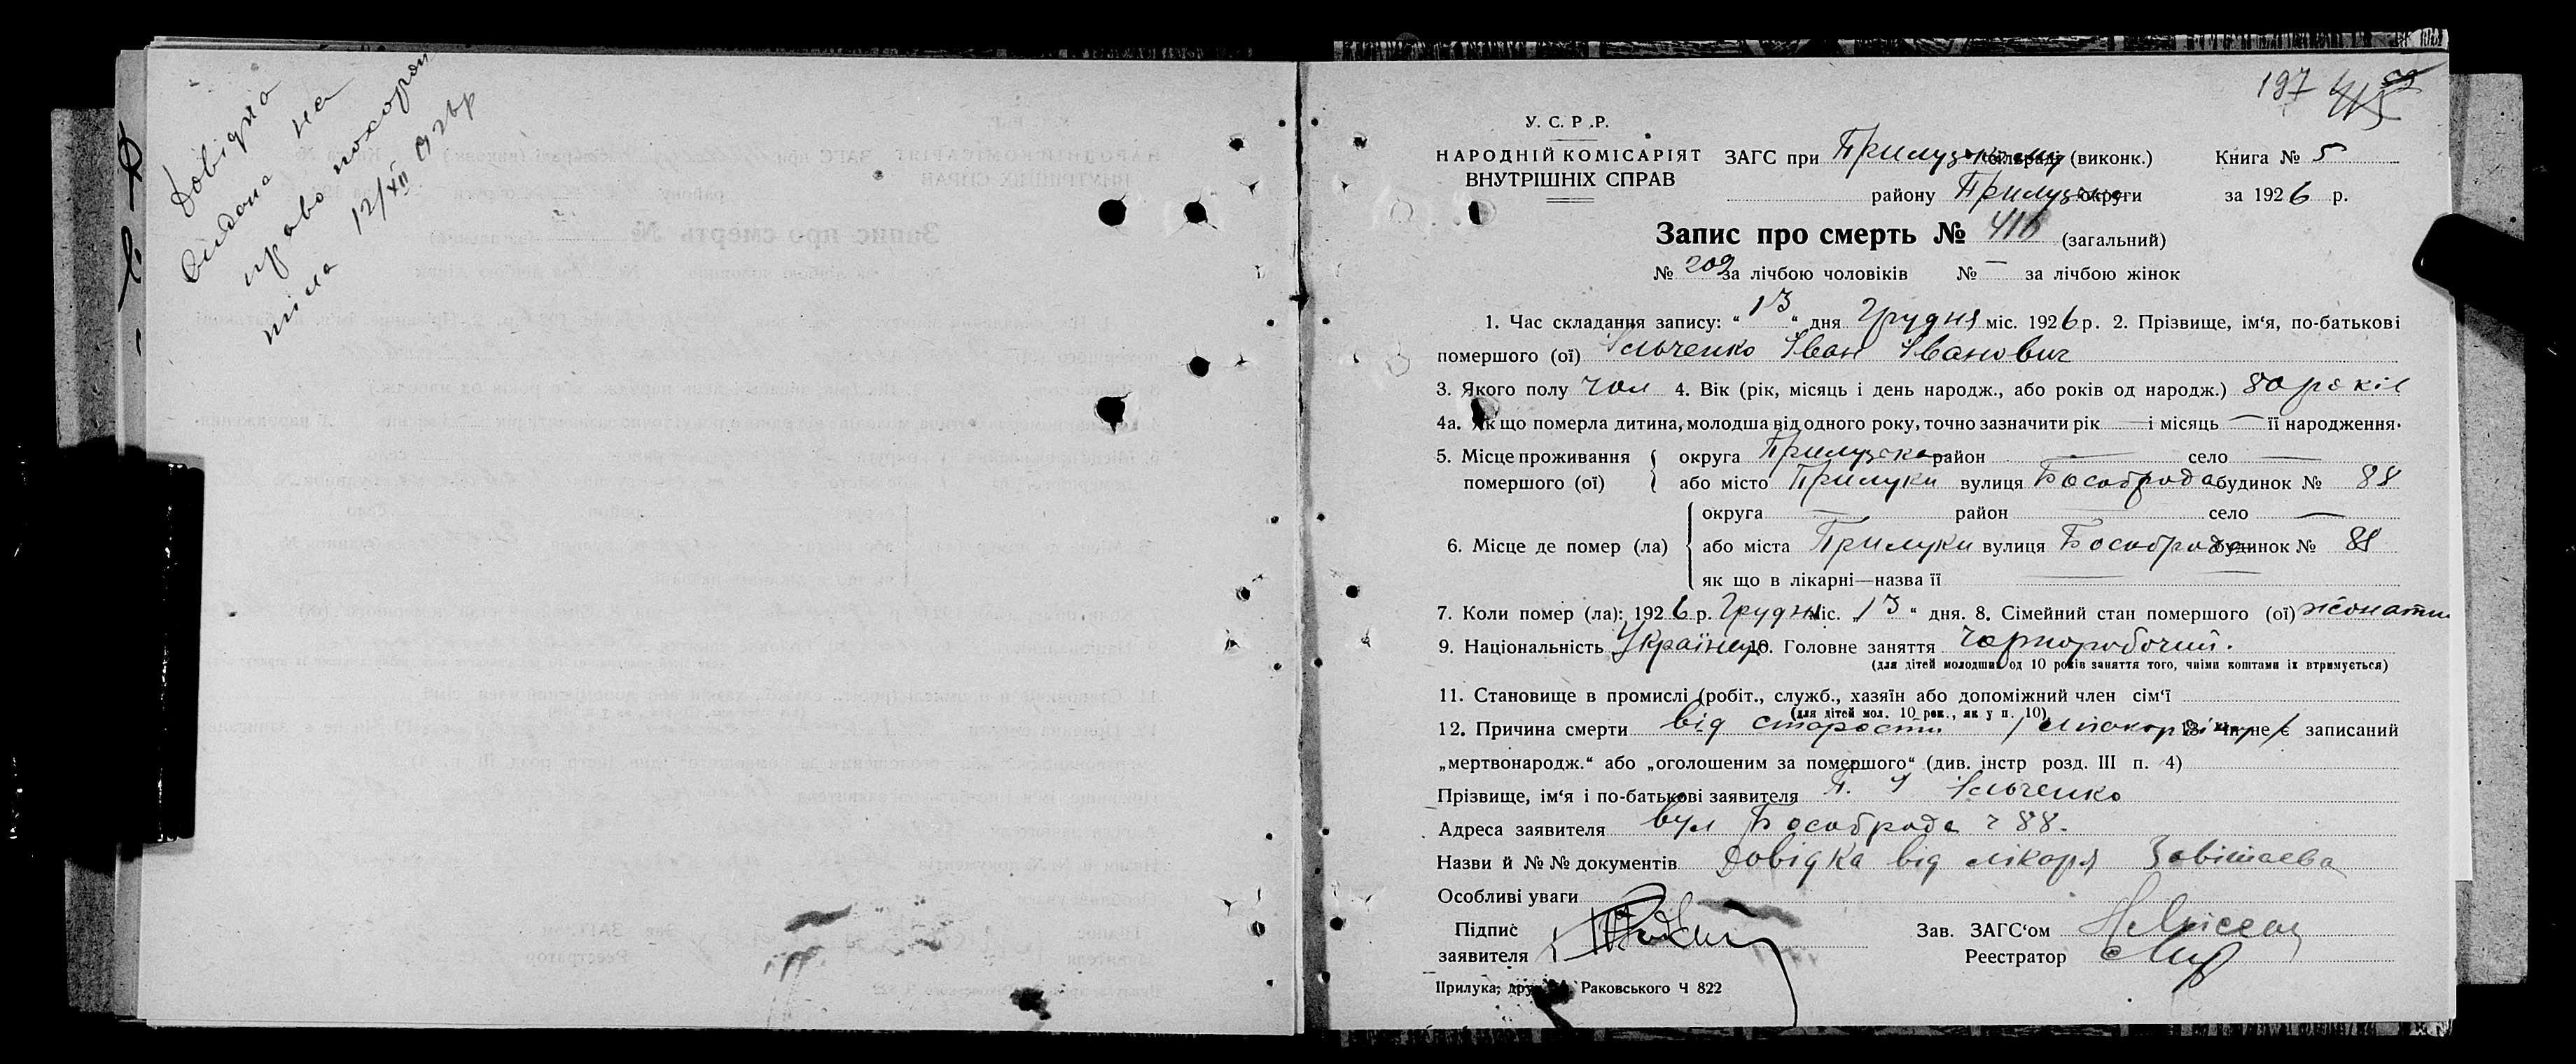 Довідка
видана на
право похорон
тіла 12/XII
197
У. С. Р. Р.
НАРОДНІЙ КОМІСАРІЯТ
ВНУТРІШНІХ СПРАВ
ЗАГС при Прилуцькому сільраді (виконк.) Книга № 5
району Прилуцька округи за 1926 р.
Запис про смерть № 416 (загальний)
№ 209 за лічбою чоловіків № — за лічбою жінок
1. Час складання запису: “ 13 “ дня Грудня міс. 1926 р. 2. Прізвище, ім‘я, по-батькові
помершого (ої) Ільченко Іван Іванович
3. Якого полу чол 4. Вік (рік, місяць і день народж., або років од народж.) 80 років
4а. Як що померла дитина, молодша від одного року, точно зазначити рік — і місяць — її народження.
5. Місце проживання помершого (ої) округа Прилуцька район — село —
або місто Прилуки вулиця Бособрода будинок № 88
6. Місце де помер (ла) округа — район — село —
або міста Прилуки вулиця Бособрода будинок № 88
як що в лікарні—назва її —
7. Коли помер (ла): 1926 р. Грудня міс. „13“ дня. 8. Сімейний стан помершого (ої) жонатий
9. Національність Українець 10. Головне заняття Чорноробочий.
(для дітей молодших од 10 років заняття того, чиїми коштами їх втримується)
11. Становище в промислі (робіт., служб., хазяїн або допоміжний член сім‘ї
(для дітей мол. 10 рок., як у п. 10)
12. Причина смерти від старости 13. Чи не є записаний
„мертвонародж.“ або „оголошеним за помершого“ (див. інстр розд. III п. 4)
Прізвище, ім‘я і по-батькові заявителя П. І Ільченко
Адреса заявителя вул Бособрода ч 88.
Назви й № № документів Довідка від лікаря
Особливі уваги
Підпис заявителя
Зав. ЗАГС‘ом
Реестратор
Прилука, Раковського Ч 822